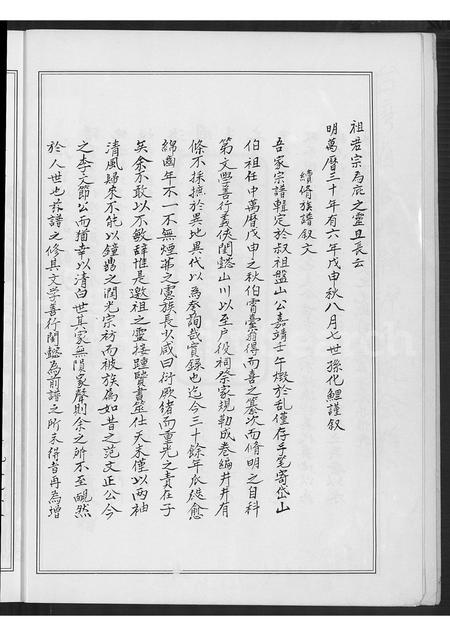 祖若宗為庇之靈且長云
明萬曆三十年有六年戊申秋八月七世孫化鯉謹叙
續脩族譜叙文
吾家宗譜輯定於叔祖盤山公嘉靖壬午燬於乱僅存手笔寄岱山
伯祖任中萬曆戊申之秋伯霄臺翁得而喜之纂次而脩明之自科
第文學善行義俠閨懿山川以至戶役祠祭家規勒成卷編井井有
條不採摭於異地異代以為夸詡哉實錄也迄今三十餘年瓜瓞愈
綿齒年不一不無煙莽之憲族長以咸曰衍厥緒而重光之責在子
矣余不敢以不敏辞惟是邀祖之靈接踵賢書筮仕天朱僅以两袖
清風歸來不能以鐘鼎之潤光宗祊而被族為如昔之范文正公今
之李文節公而猶幸以清白世其家無隕家聲則余之所不至靦然
於人世也茲譜之修其文学善行閨懿為前譜之所未得者再為增